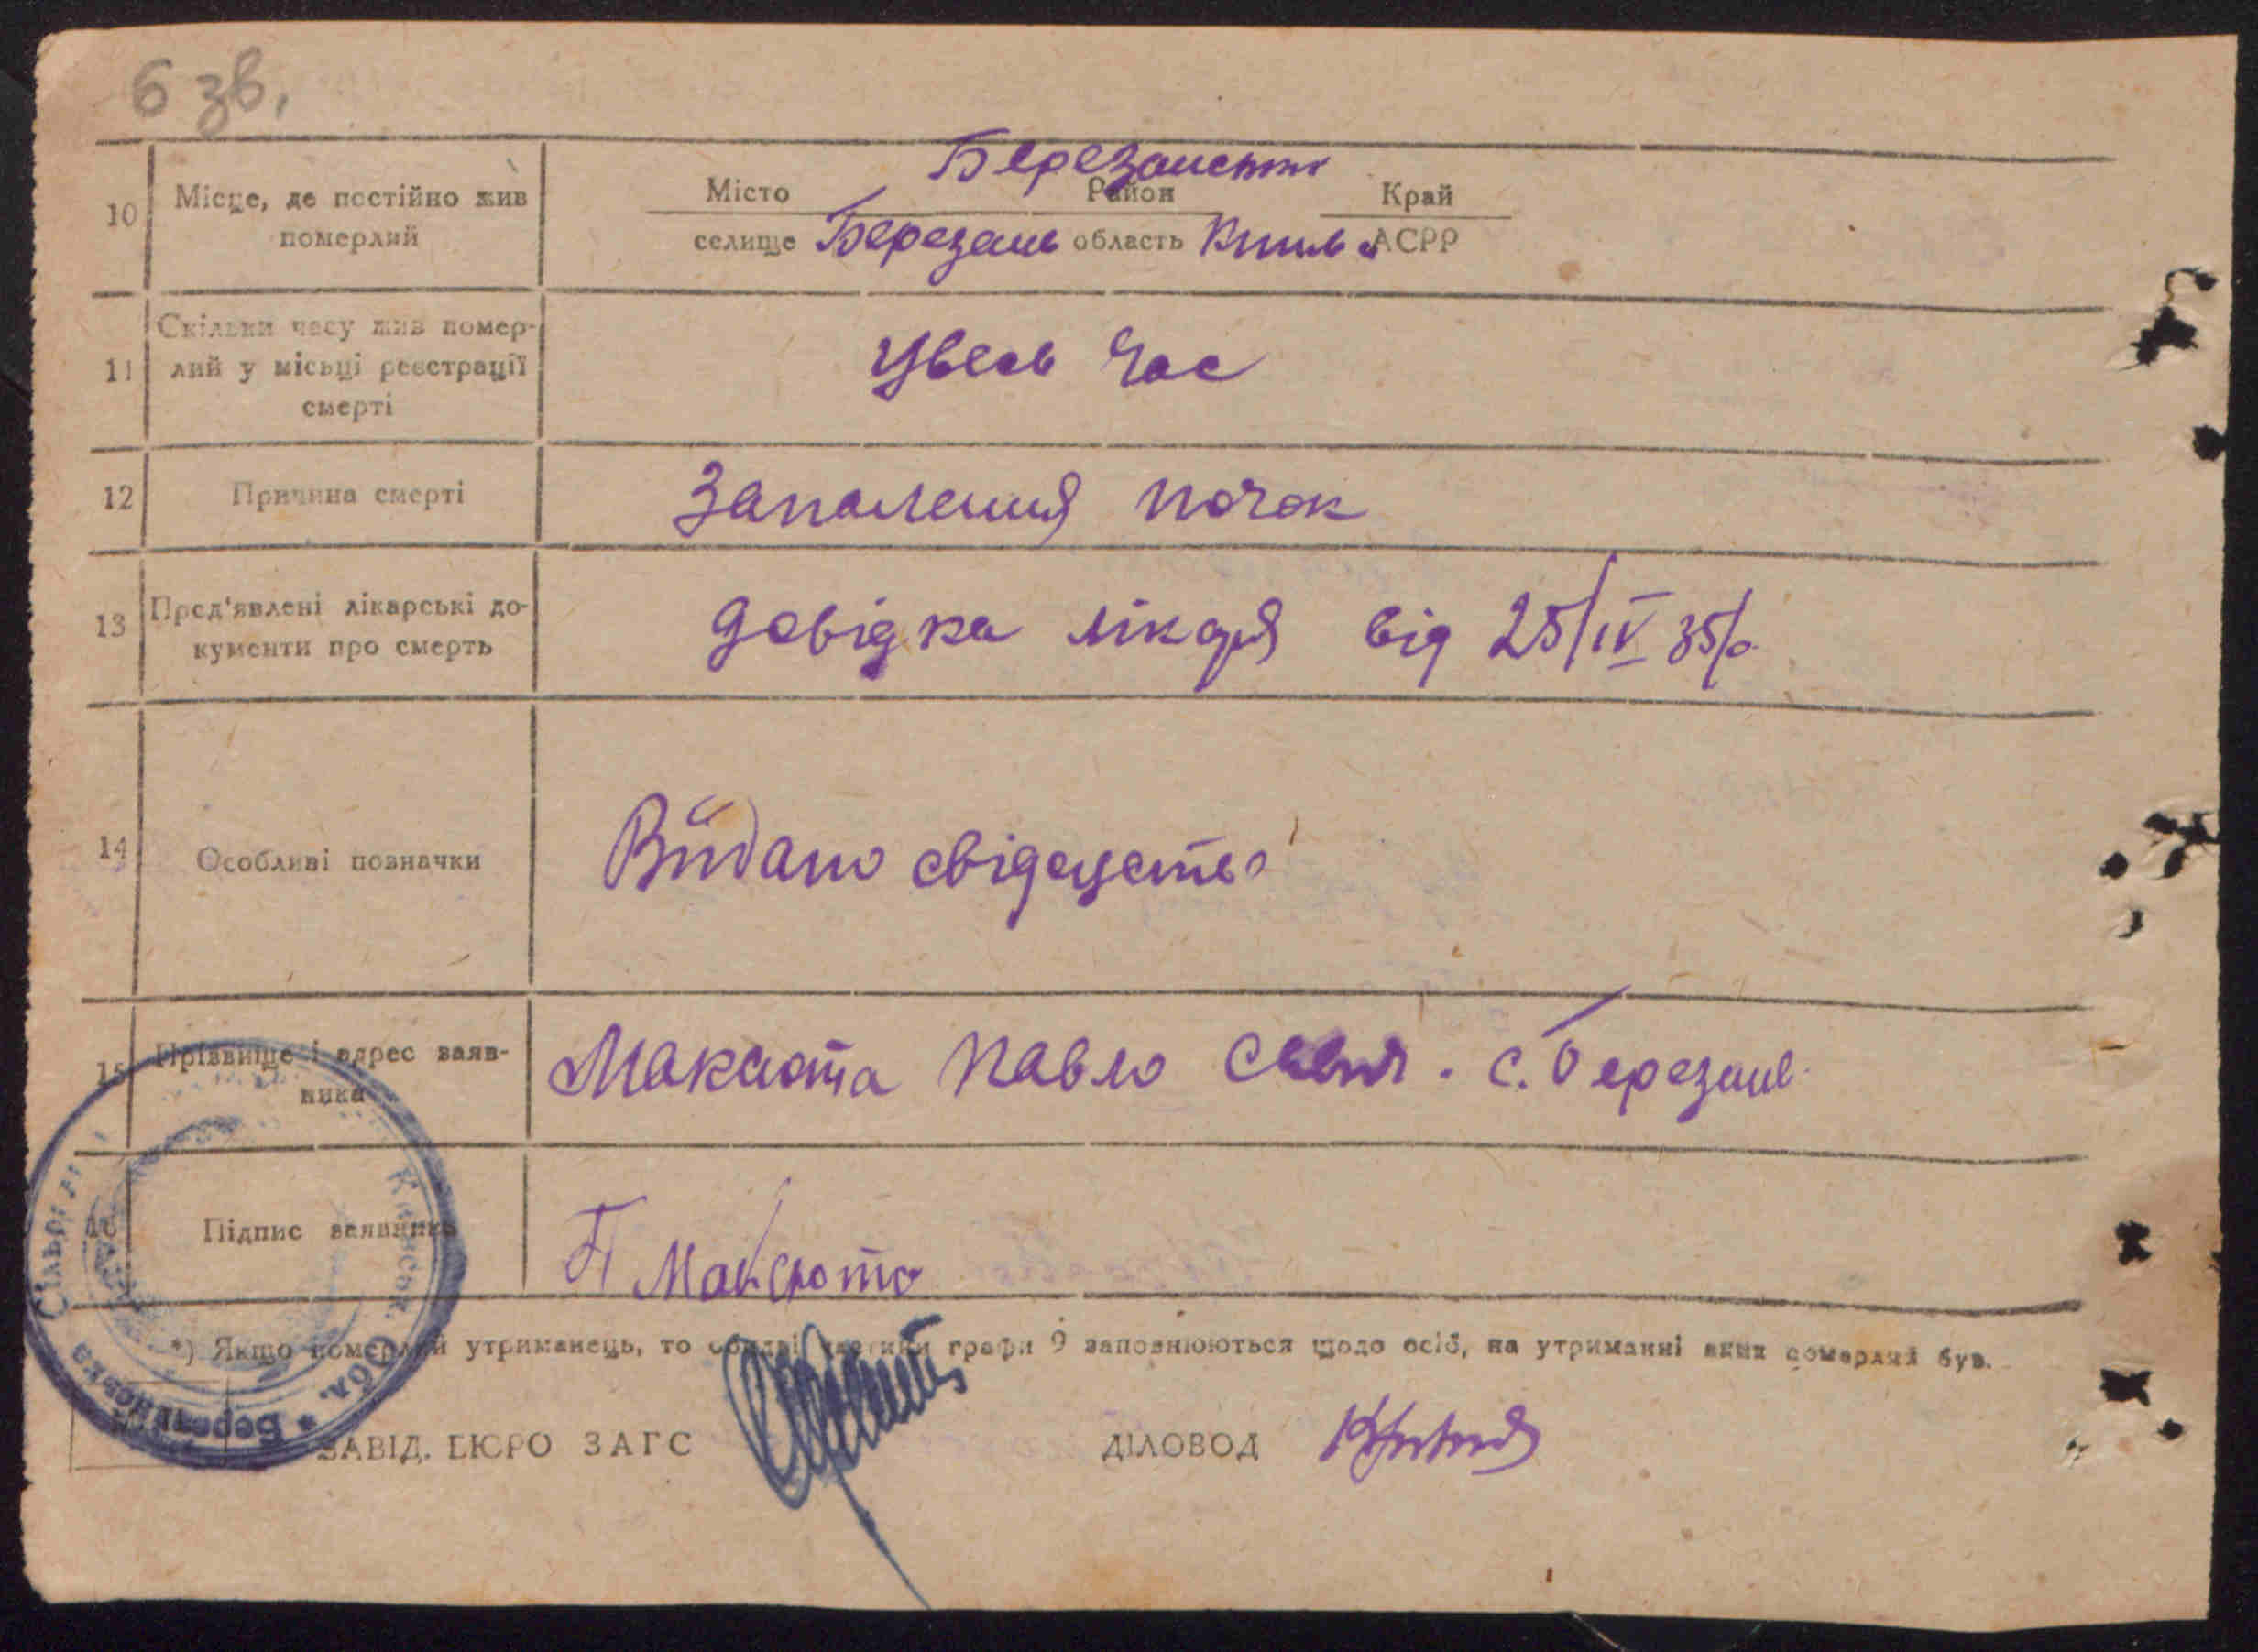 6 зв.
Березанський
10 Місце, де постійно жив Місто Район Край
померлий селище Березань область Київськ АСРР
Скільки часу жив помер-
11 лий у місьці реєстрації Увесь час
смерті
12 Причина смерті Запалення почок
13 Пред'явлені лікарські до- довідка лікаря від 25/IV 35 р.
кументи про смерть
14 Особливі позначки Видано свідоцтво
15 Прізвище і адрес заяв- Макюта Павло с. Березань
ника
16 Підпис заявника П
*) Якщо померлий утриманець, то обидві частини графи 9 заповнюються щодо осіб, на утриманні яких померлий був.
ЗАВІД. БЮРО ЗАГС ДІЛОВОД
Київськ. Обл. * Сільрада